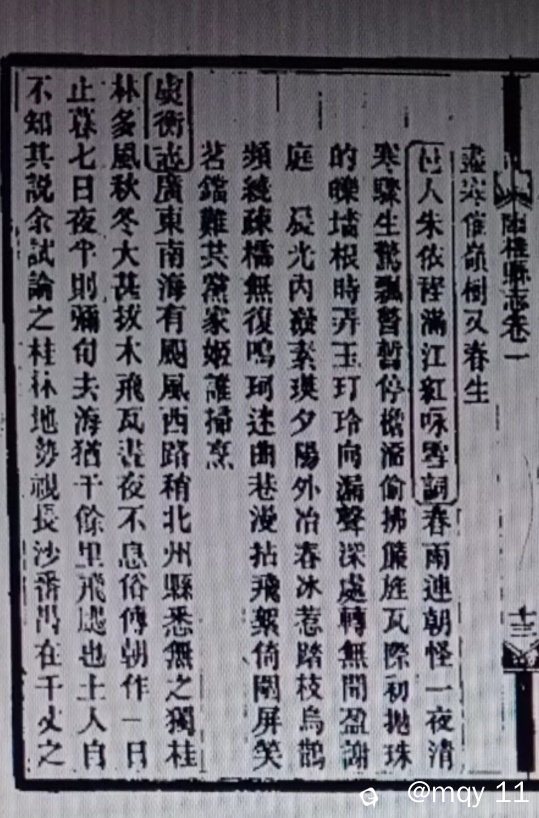 臨桂縣志卷一
十三
盡寒催嶺樹又春生
邑人朱依程滿江紅咏雪詞春雨連朝怪一夜清
寒驟生驚飄瞥暫停檐溜偷拂簾旌瓦際初拋珠
的皪墻根時弄玉玎玲向漏聲深處轉無聞盈謝
庭 晨光內凝素瑛夕陽外冶春冰惹踏枝烏鵲
頻繞疎櫺無復鳴珂迷曲巷漫拈飛絮倚圍屏笑
茗鐺難共黨家姬誰掃烹
虞衡志廣東南海有颶風西路稍北州縣悉無之獨桂
林多風秋冬大甚拔木飛瓦晝夜不息俗傳朝作一日
止暮七日夜半則彌旬去海猶千餘里飛颶也土人自
不知其說余試論之桂林地勢視長沙番禺在千丈之
@mqy 11